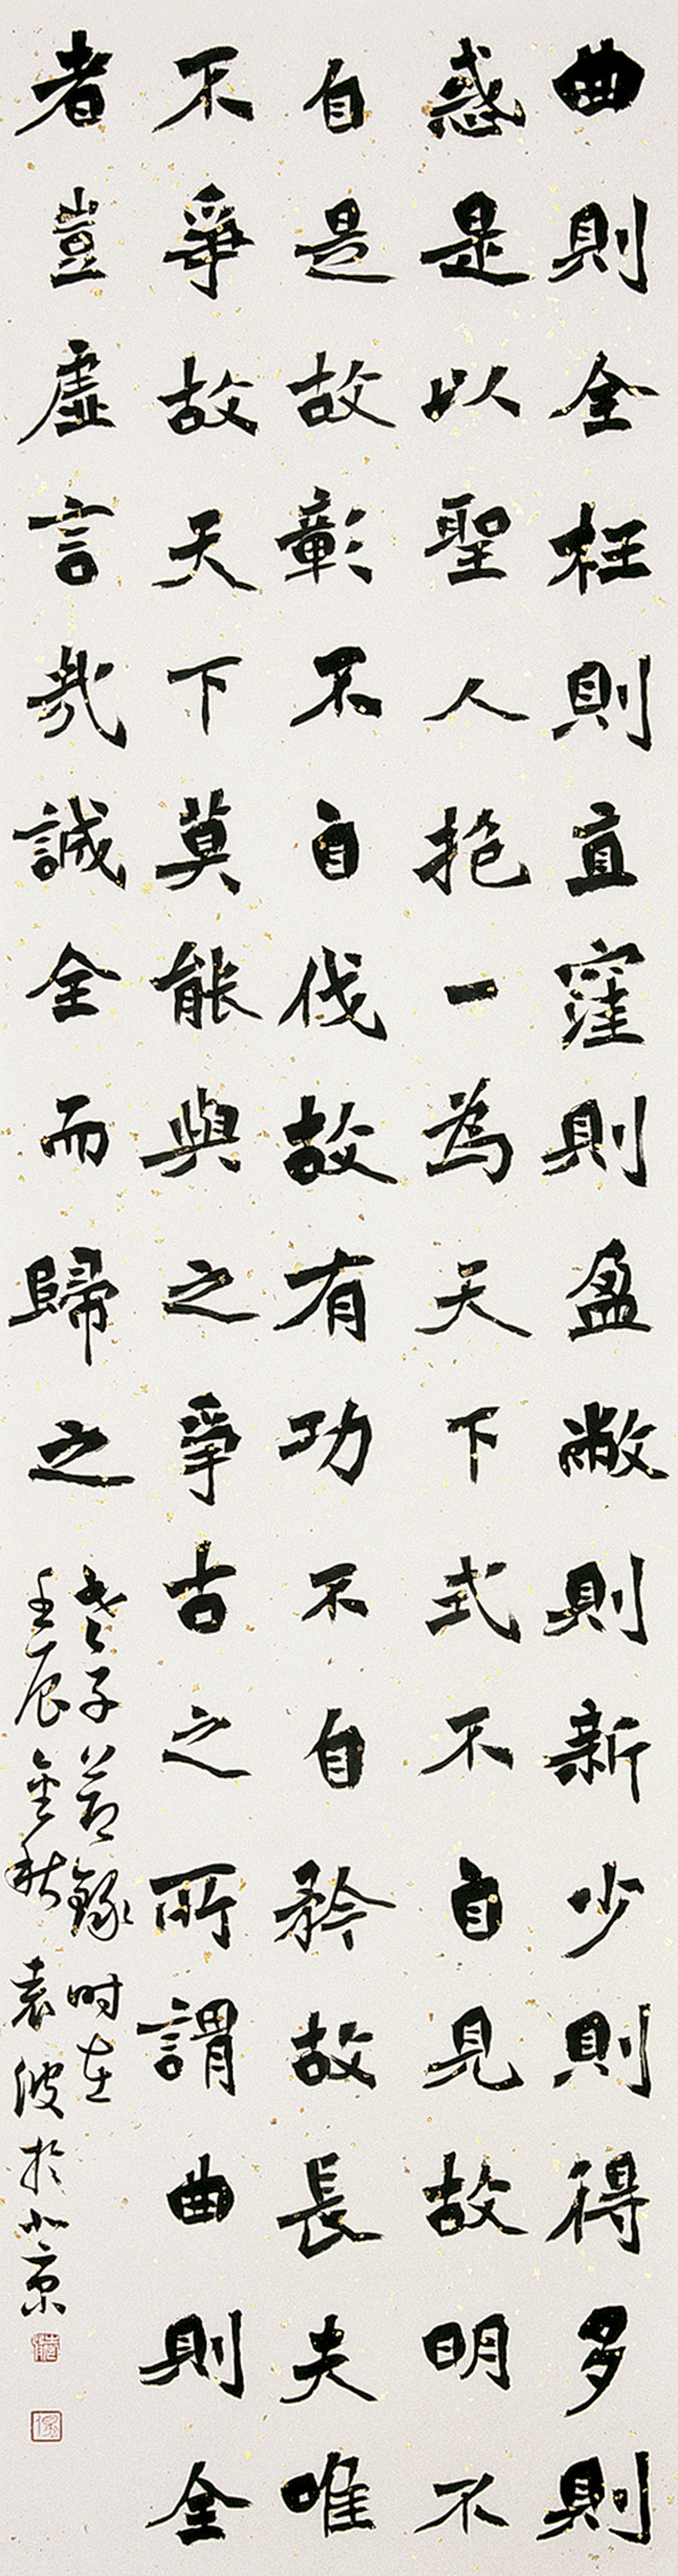 曲則全枉則直窪則盈敝則新少則得多則
惑是以聖人抱一為天下式不自見故明不
自是故彰不自伐故有功不自矜故長夫唯
不爭故天下莫能與之爭古之所謂曲則全
者豈虛言哉誠全而歸之
老子首錄时在
壬辰金秋袁波於北京